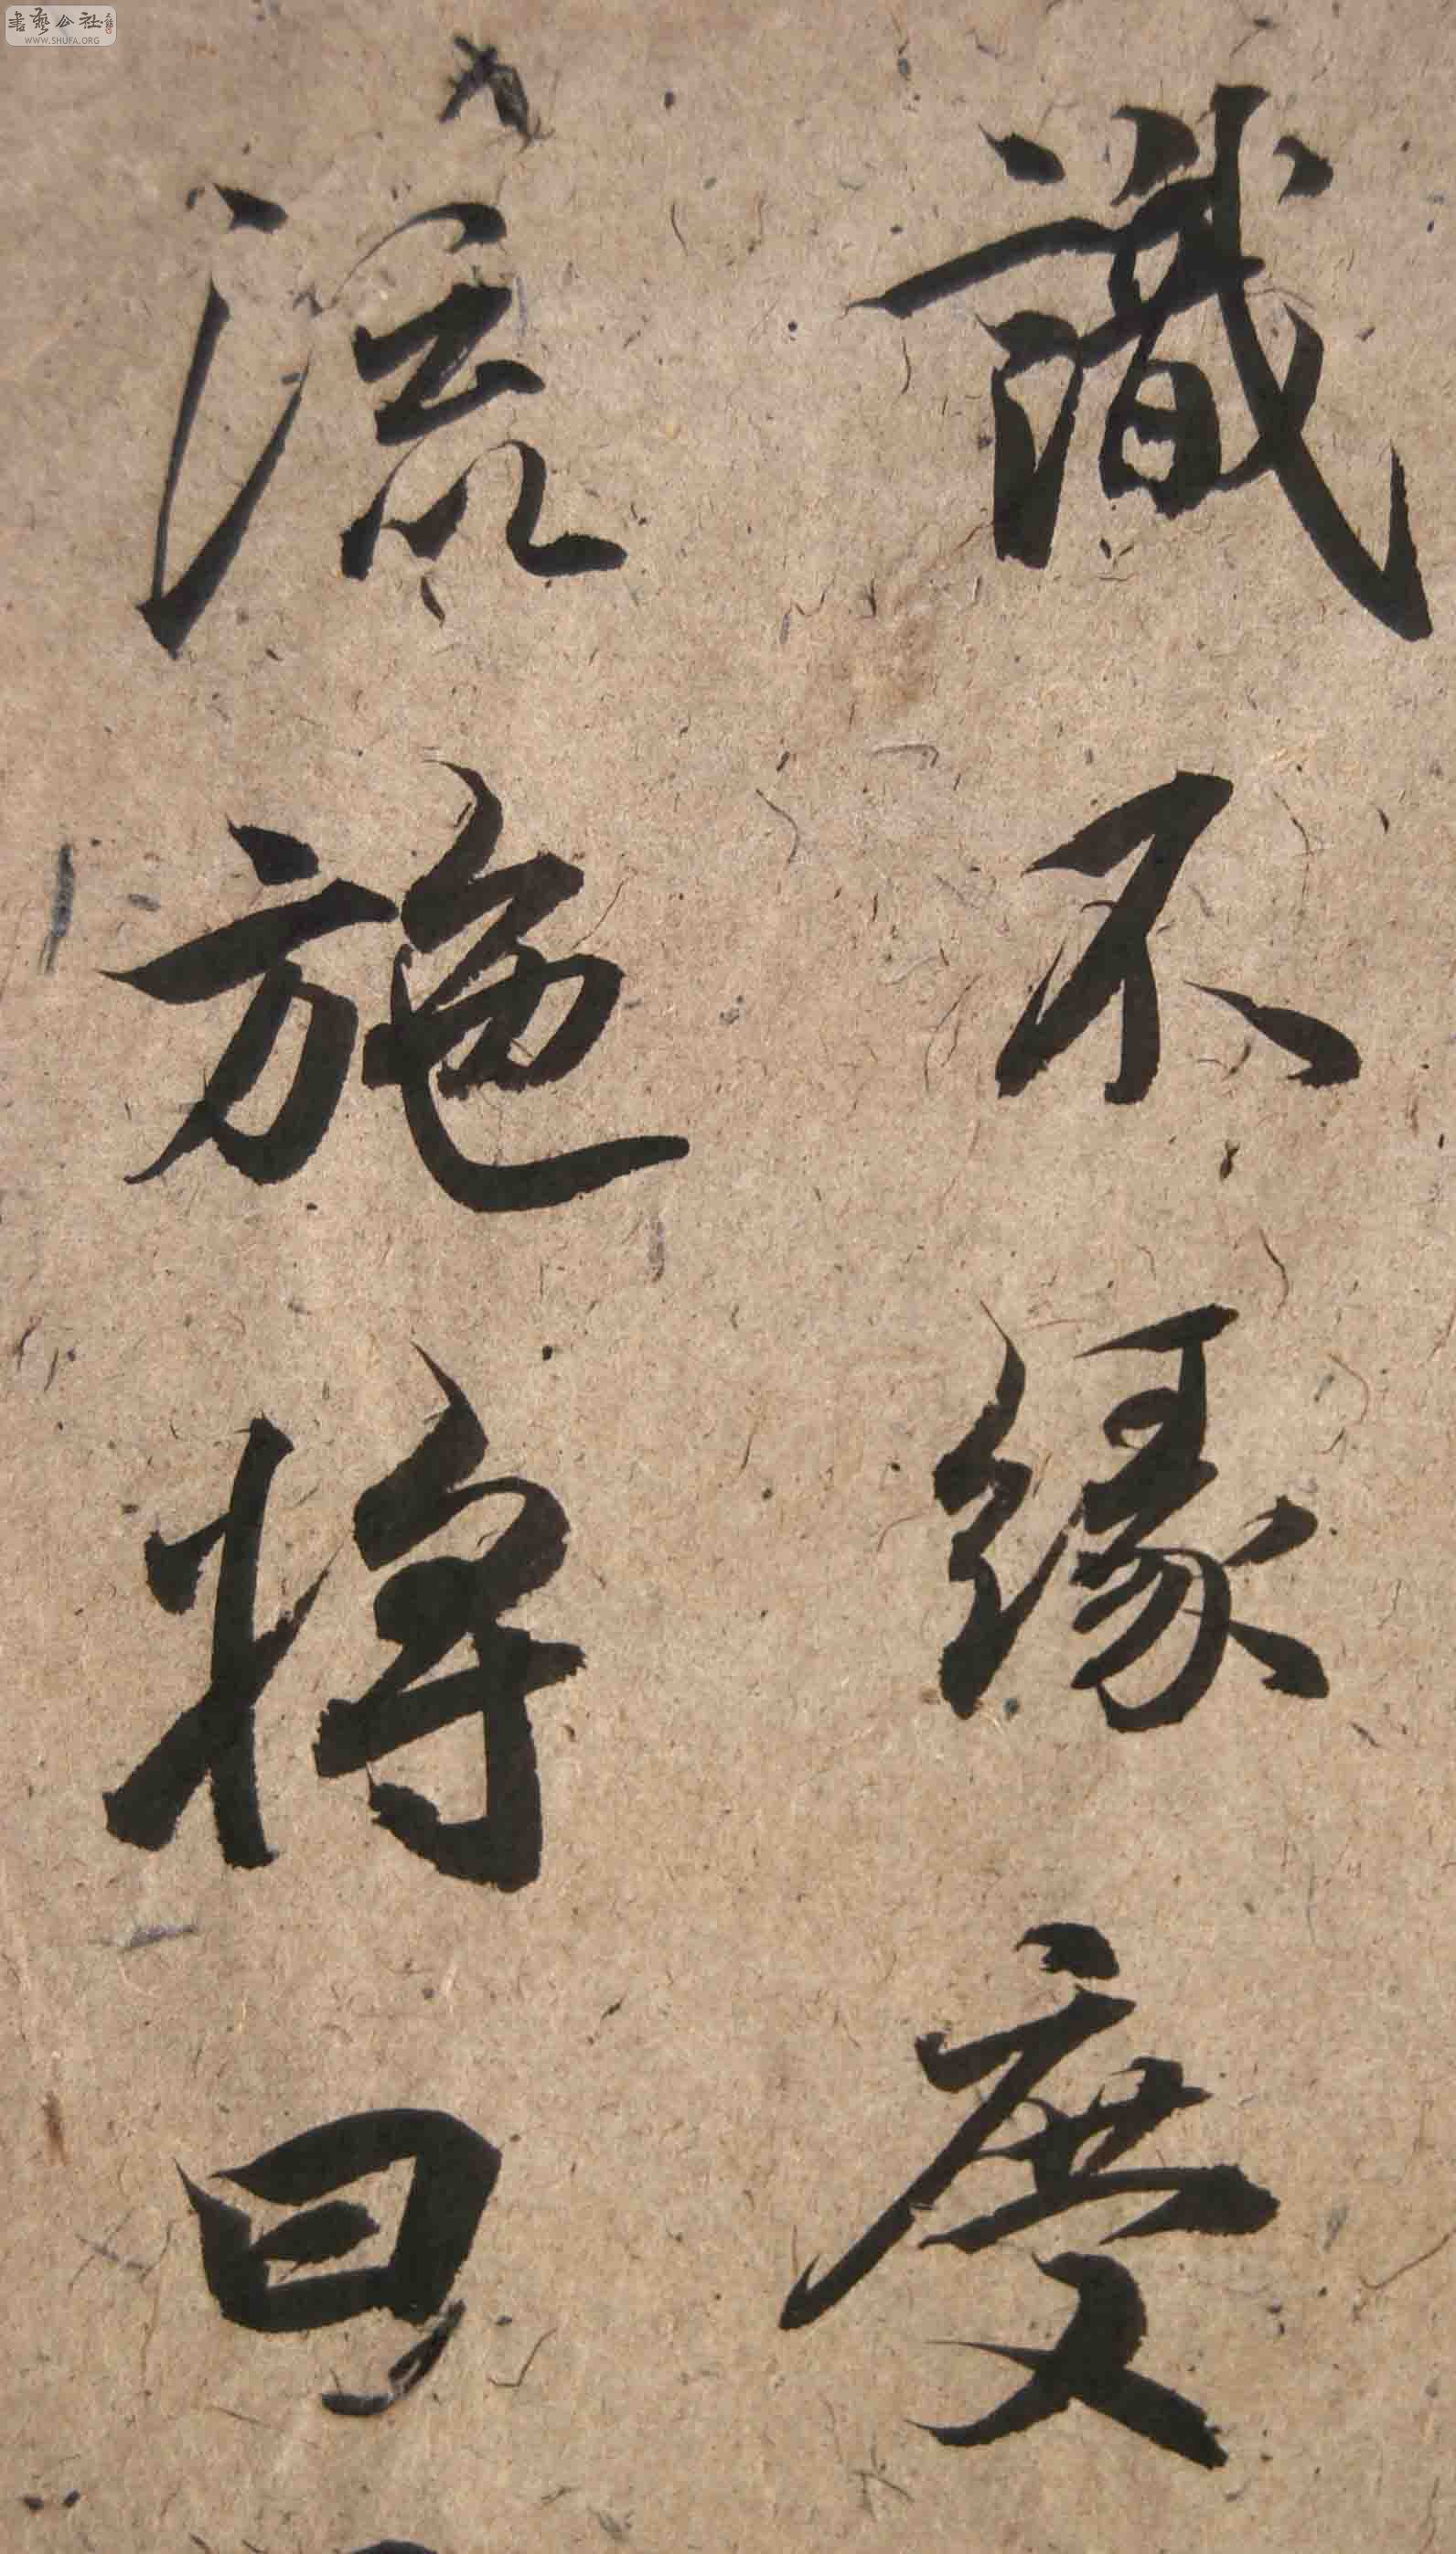 識不緣慶
流施將日
書藝公社
WWW.SHUFA.ORG